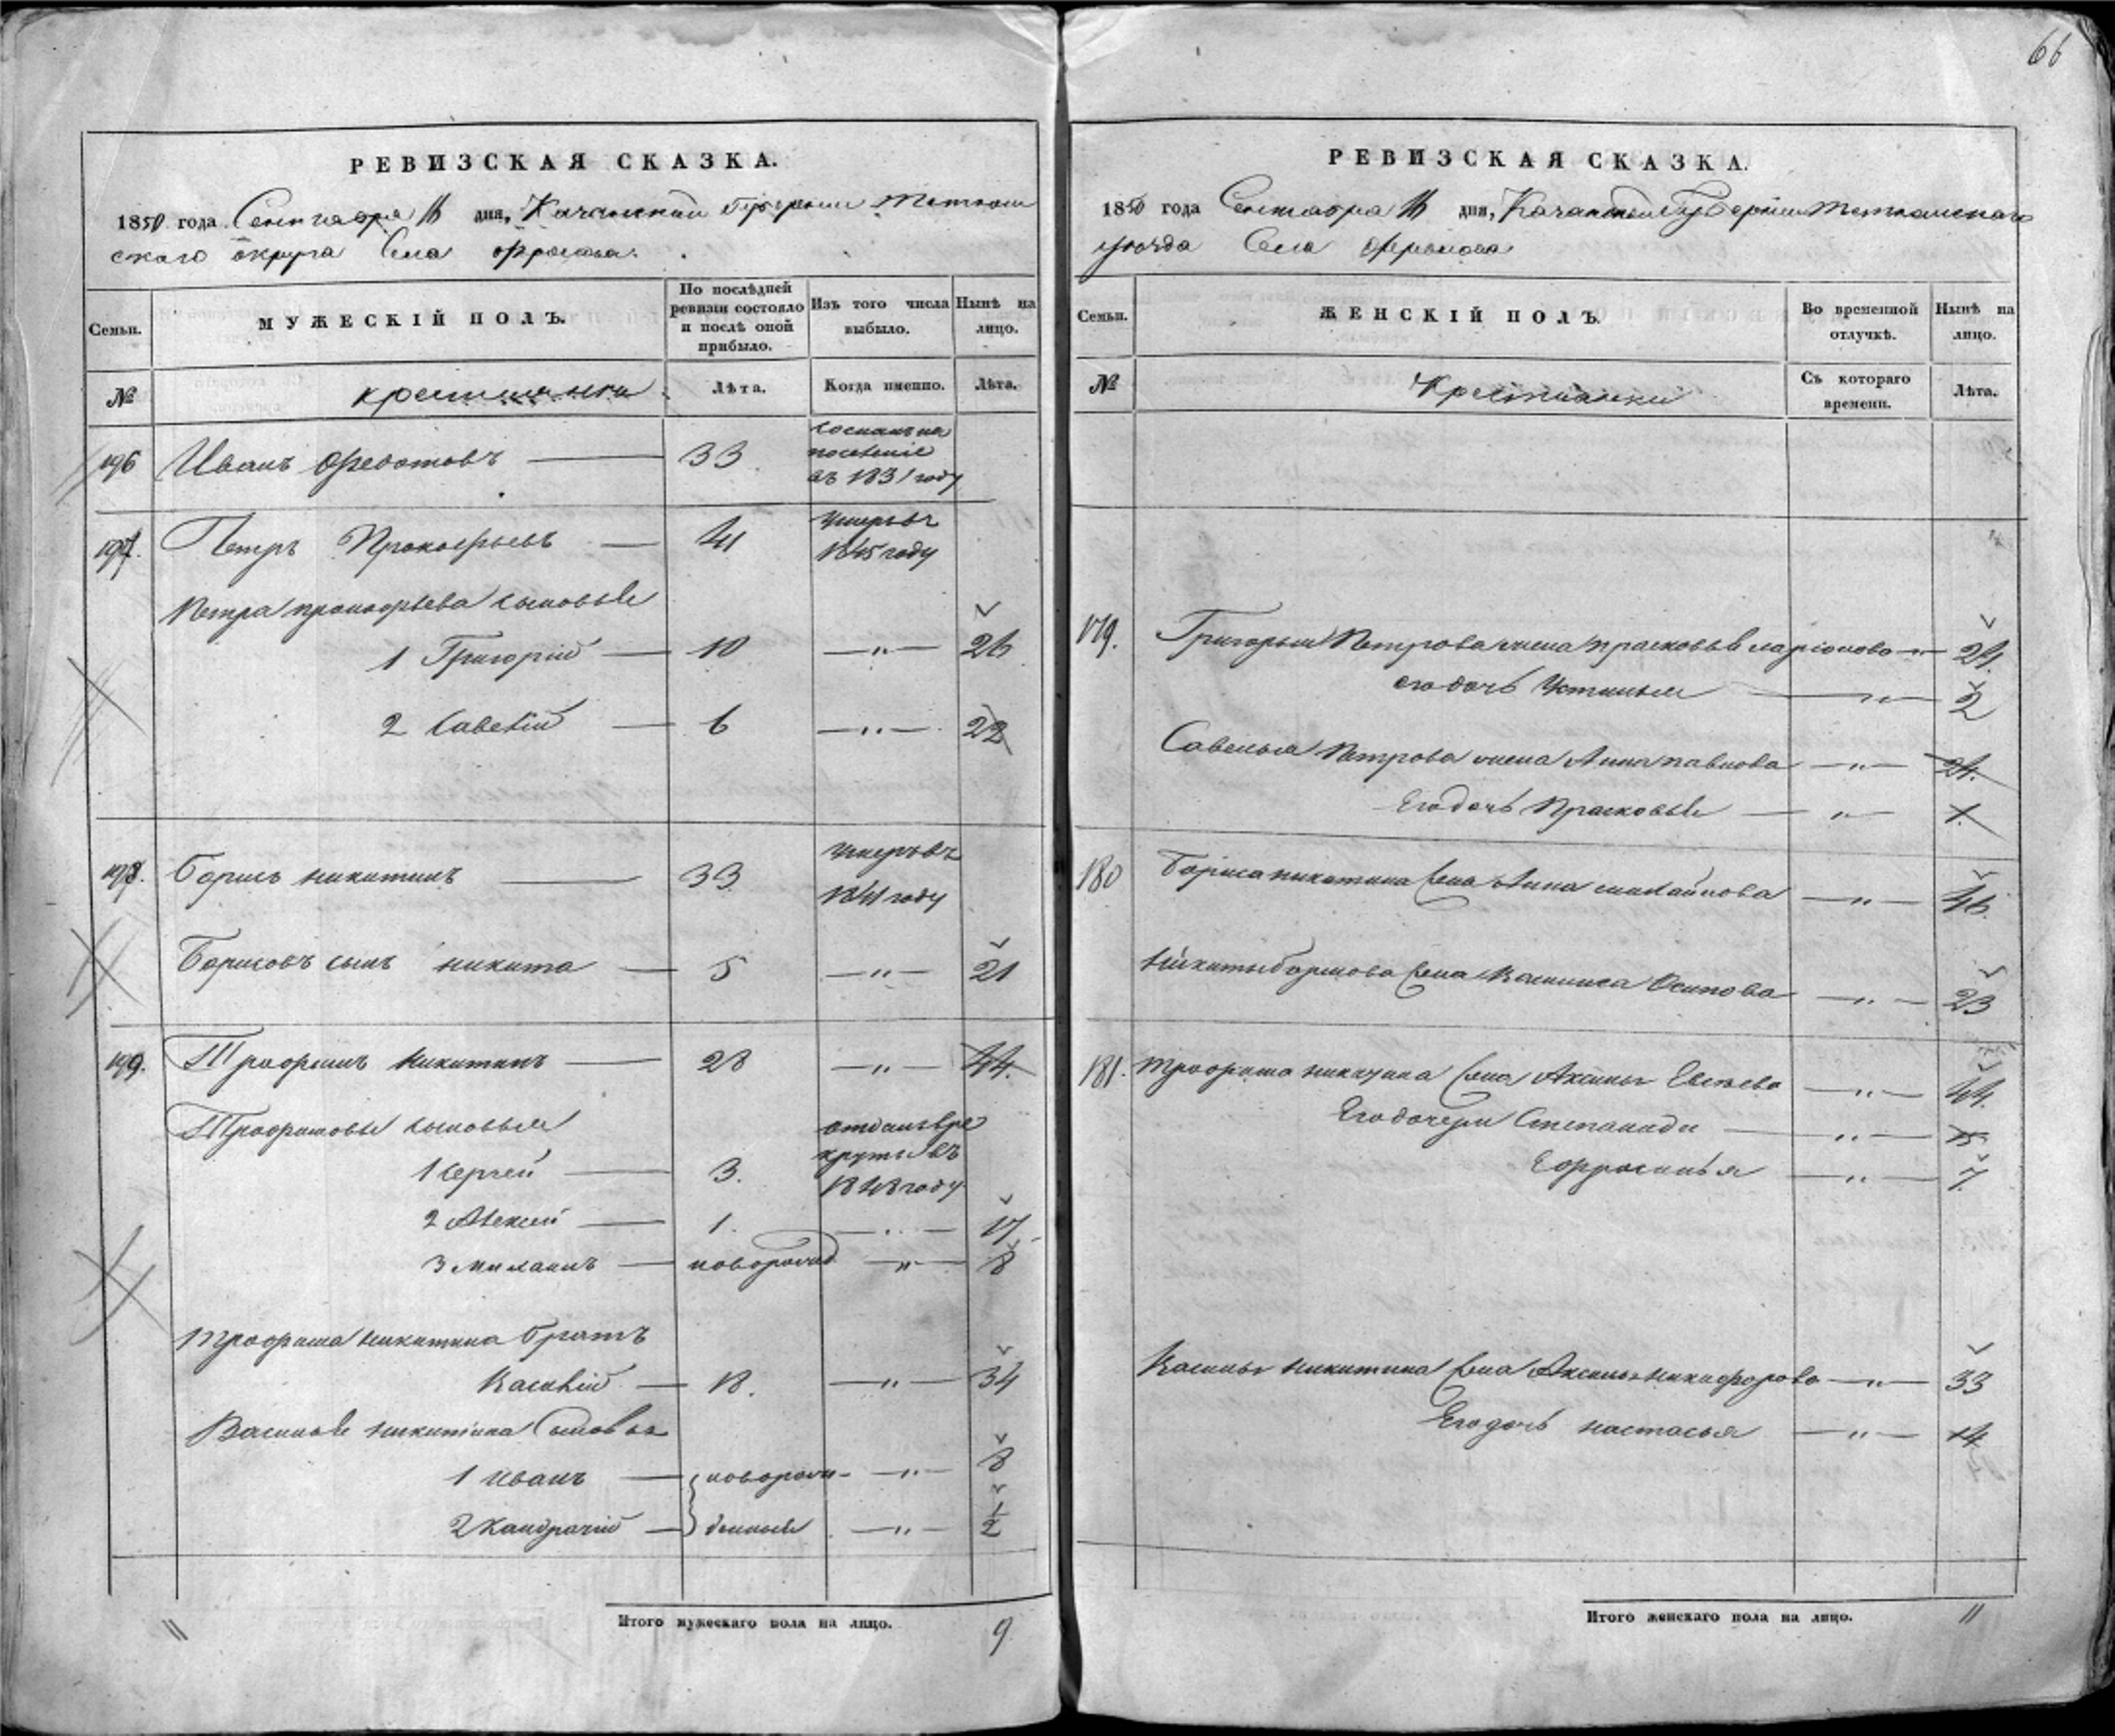 66
РЕВИЗСКАЯ СКАЗКА.
1850 года Сентября 16 дня, Казанской Губернии Тетюш
скаго округа Села Фролова.
Семьи.
МУЖЕСКІЙ ПОЛЪ.
По послѣдней ревизіи состояло и послѣ оной прибыло.
Изъ того числа выбыло.
Нынѣ на лицо.
№
крестьяне
Лѣта.
Когда именно.
Лѣта.
196 Иванъ Федотовъ — 33 сосланъ на
поселеніе
въ 1831 году
197. Петръ Прокофьевъ — 41 умеръ въ
1845 году
Петра Прокофьева сыновья
1 Григорій — 10 — „ — 26
2 Савелій — 6 — „ — 22
198. Борисъ Никитинъ — 33 умеръ въ
1841 году
Борисовъ сынъ Никита — 5 — „ — 21
199. Трофимъ Никитинъ — 28 — „ — 44.
Трофимовы сыновья
1 Сергей — 3. отданъ в ре
круты въ
1848 году
2 Алексей — 1. — „ — 17.
3 — новорожд — „ — 8
Трофима Никитина братъ
Василій — 18. — „ — 34
Василья Никитина Сыновья
1 Иванъ — новорож- — „ — 8
2 Кандратій — денные — „ — 1/2
Итого мужескаго пола на лицо. 9
РЕВИЗСКАЯ СКАЗКА.
1850 года Сентября 16 дня, Казанской Губерніи Тетюшскаго
уезда Села Фролова
Семьи.
ЖЕНСКІЙ ПОЛЪ.
Во временной отлучкѣ.
Нынѣ на лицо.
№
Крестьянки
Съ котораго времени.
Лѣта.
179. Григорья Петрова жена Прасковья Ларіонова — „ — 24.
его дочь Устинья — „ — 2
Савелья Петрова жена Анна Павлова — „ — 24.
Его дочь Прасковья — „ — 1.
180 Бориса Никитина жена Анна Михайлова — „ — 46.
Никиты Борисова жена Василиса Осипова — „ — 23
181. Трофима Никитина жена Аксинья — „ — 44.
Его дочери Степанида — „ — 15
Ефросинья — „ — 7.
Василья Никитина жена Аксинья Никифорова — „ — 33
Его дочь Настасья — „ — 14
Итого женскаго пола на лицо. 11